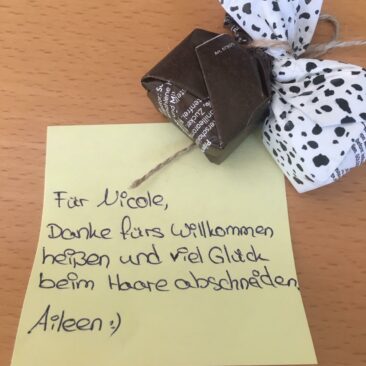 Für Nicole,
Danke fürs Willkommen
heißen und viel Glück
beim Haare abschneiden.
Aileen :)